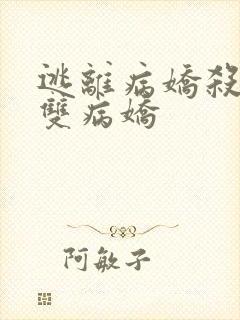 逃離病嬌殺
雙病嬌
阿敏子